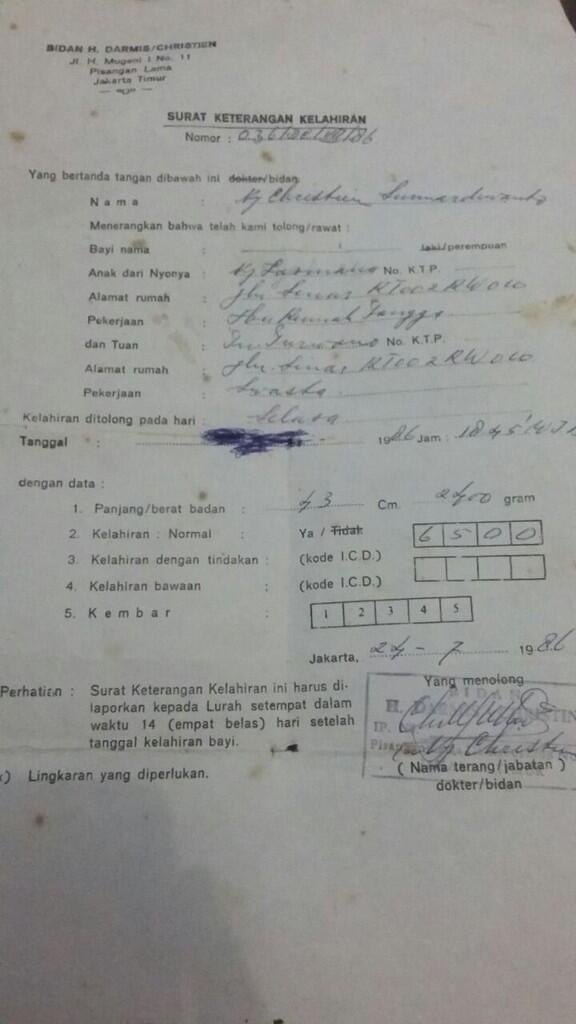 BIDAN H. DARMIS/CHRISTIEN
Jl. H. Mugeni I No. 11
Pisangan Lama
Jakarta Timur
SURAT KETERANGAN KELAHIRAN
Nomor :
Yang bertanda tangan dibawah ini dokter/bidan
Nama : Ny Christien
Menerangkan bahwa telah kami tolong/rawat :
Bayi nama : laki/perempuan
Anak dari Nyonya : Ny No. K.T.P.
Alamat rumah : Jln. RT002 RW010
Pekerjaan : Ibu Rumah Tangga
dan Tuan : Tn. No. K.T.P.
Alamat rumah : Jln. RT002 RW010
Pekerjaan : Swasta
Kelahiran ditolong pada hari : Selasa
Tanggal : 1986 Jam : 1845 WIB
dengan data :
1. Panjang/berat badan : 43 Cm. 2400 gram
2. Kelahiran : Normal : Ya / Tidak 6 5 0 0
3. Kelahiran dengan tindakan : (kode I.C.D.)
4. Kelahiran bawaan : (kode I.C.D.)
5. Kembar : 1 2 3 4 5
Jakarta, 24 - 7 1986
Yang menolong
BIDAN
Perhatian : Surat Keterangan Kelahiran ini harus di-
laporkan kepada Lurah setempat dalam
waktu 14 (empat belas) hari setelah
tanggal kelahiran bayi.
Ny. Christien
( Nama terang/jabatan )
dokter/bidan
) Lingkaran yang diperlukan.